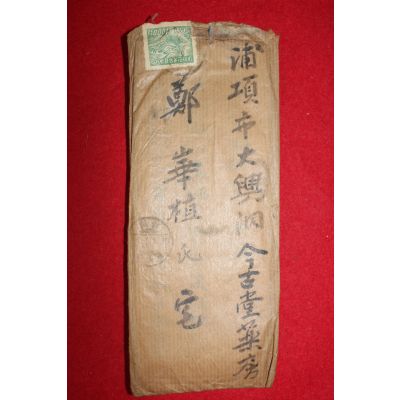 浦項市大興洞今古堂藥房
鄭華植氏宅